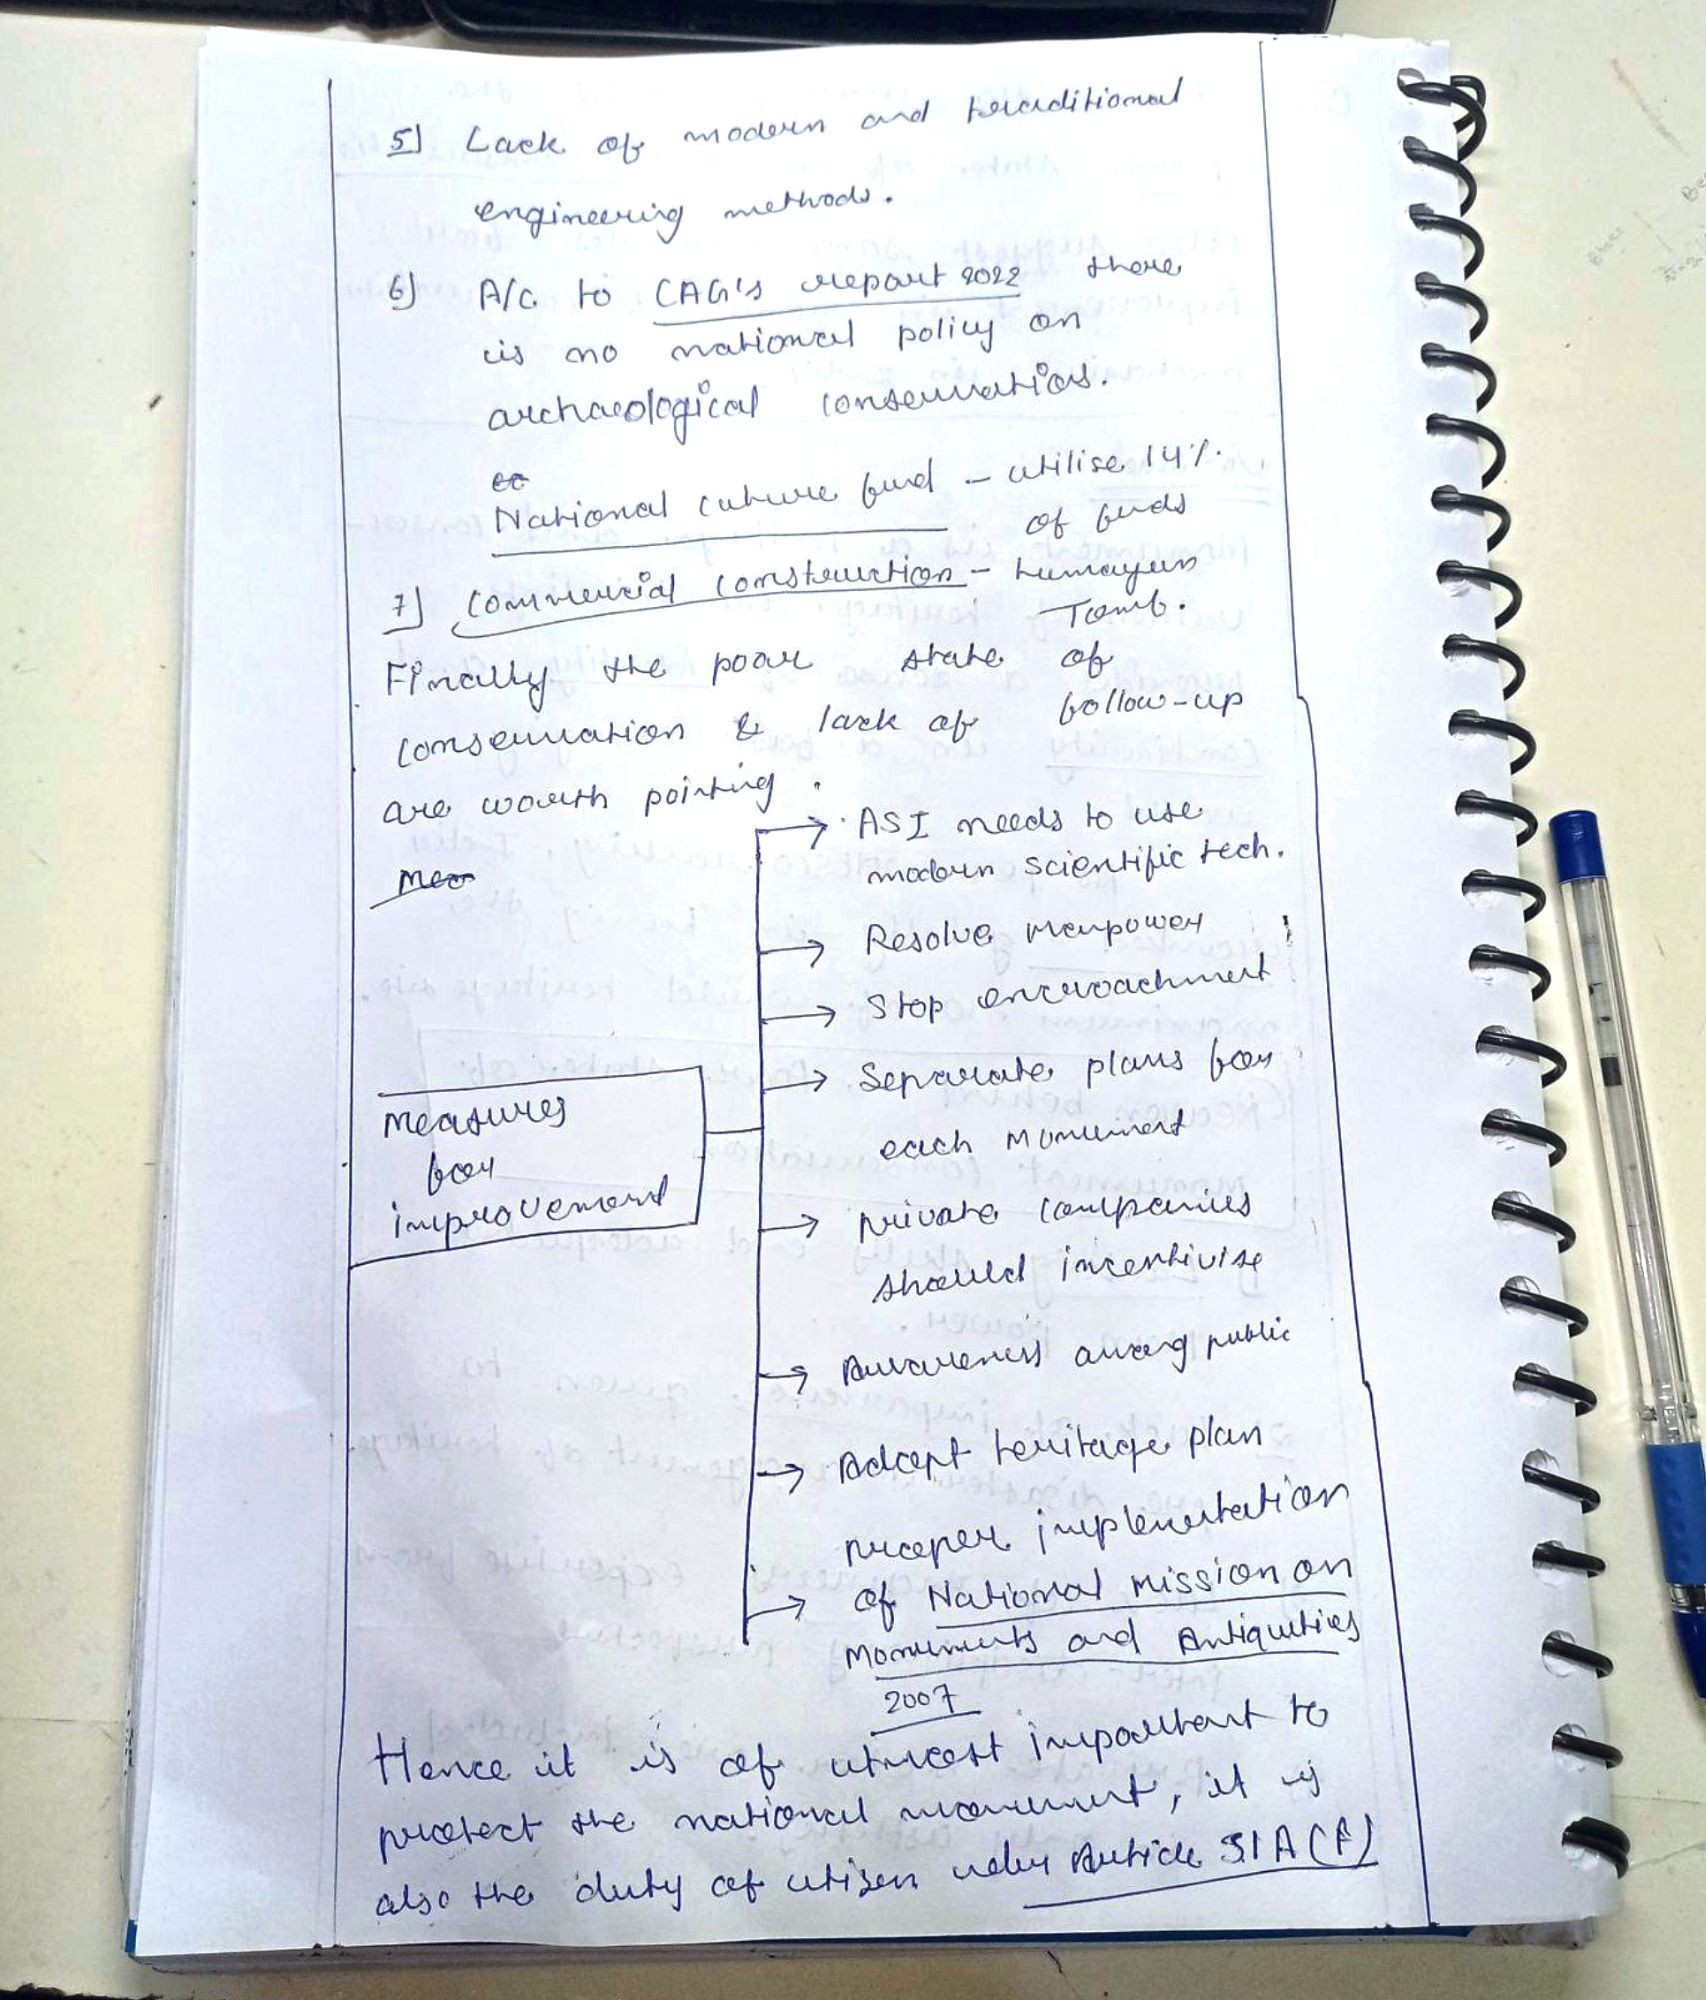 5] Lack of modern and traditional
engineering methods.
6] A/c to CAG's report 2022 there
is no national policy on
archaeological conservation.
National culture fund - utilise 14%.
of funds
7] Commercial construction - Humayun
Tomb.
Finally the poor state of
conservation & lack of follow-up
are worth pointing.
Mea
→ ASI needs to use
modern scientific tech.
→ Resolve manpower
→ Stop encroachment
→ Separate plans for
each monument
Measures
for
improvement
→ private companies
should incentivise
→ Awareness among public
→ Adopt heritage plan
proper implementation
→ of National Mission on
Monuments and Antiquities
2007
Hence it is of utmost important to
protect the national monument, it is
also the duty of citizen under Article 51A(f)